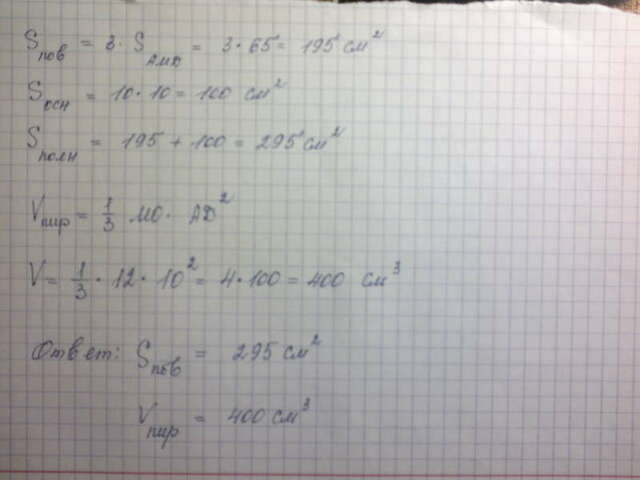 Sпов = 3 · SАМД = 3 · 65 = 195 см²
Sосн = 10 · 10 = 100 см²
Sполн = 195 + 100 = 295 см²
Vпир = 1/3 МО · АД²
V = 1/3 · 12 · 10² = 4 · 100 = 400 см³
Ответ: Sпов = 295 см²
Vпир = 400 см³